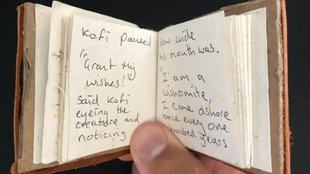 Kofi paused
"Grant my
wishes!"
Said Kofi
eyeing the
creature and
noticing
how wide
his mouth was.
I am a
wishomite,
I come ashore
once every one
hundred years